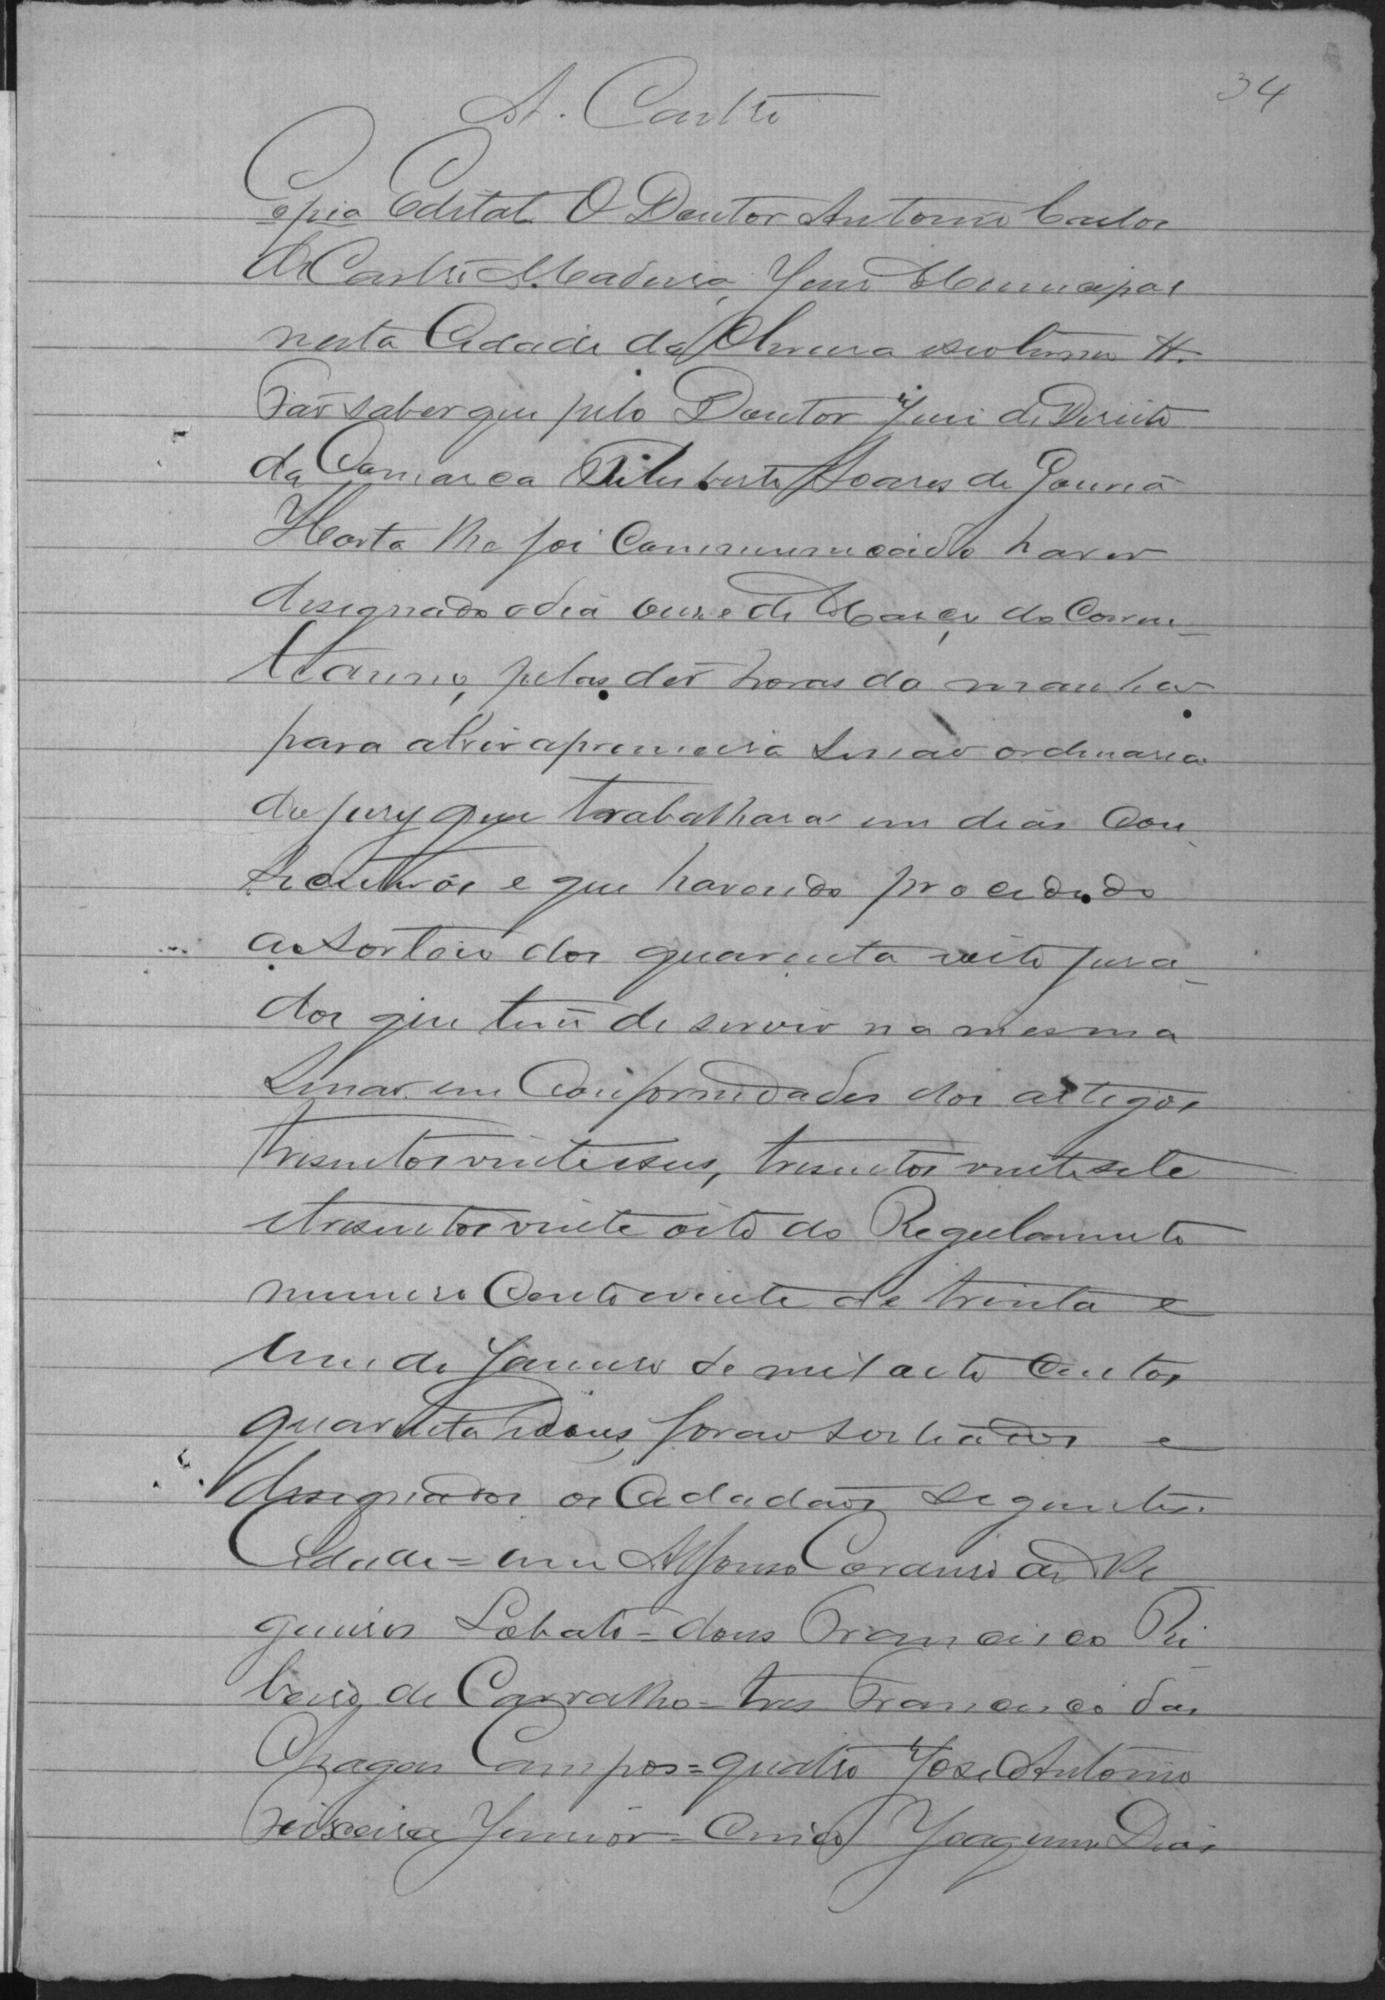 34
A. Castro
Copia Edital. O Doutor Antonio Carlos
de Castro Madura, Juiz Municipal
nesta Cidade da Oliveira e seo termo &.
Faz saber que pelo Doutor Juiz de Direito
da Comarca Feliberto Soares de Gouvêa
Horta lhe foi communicado haver
designado o dia onze de Março do corren-
te anno, pelas dez horas da manha
para abrir a primeira sessao ordinaria
do jury que trabalhara em dias con
secutivos e que havendo procedido
ao sorteio dos quarenta e oito jura-
dos que tem de servir na mesma
sessao em conformidades dos artigos
tresentos vinte e seis, tresentos vinte e sete
e tresentos vinte oito do Regulamento
numero cento e vinte de trinta e
um de Janeiro de mil oito centos
quarenta e dous, forao sorteados e
designados os Cidadãos seguintes.
Cidade = um Affonso Cordeiro de Ne
gueiros Lobato = dous Francisco Ri-
beiro de Carvalho = tres Francisco das
Chagas Campos = quatro José Antonio
Teixeira Junior = cinco Joaquim Dias